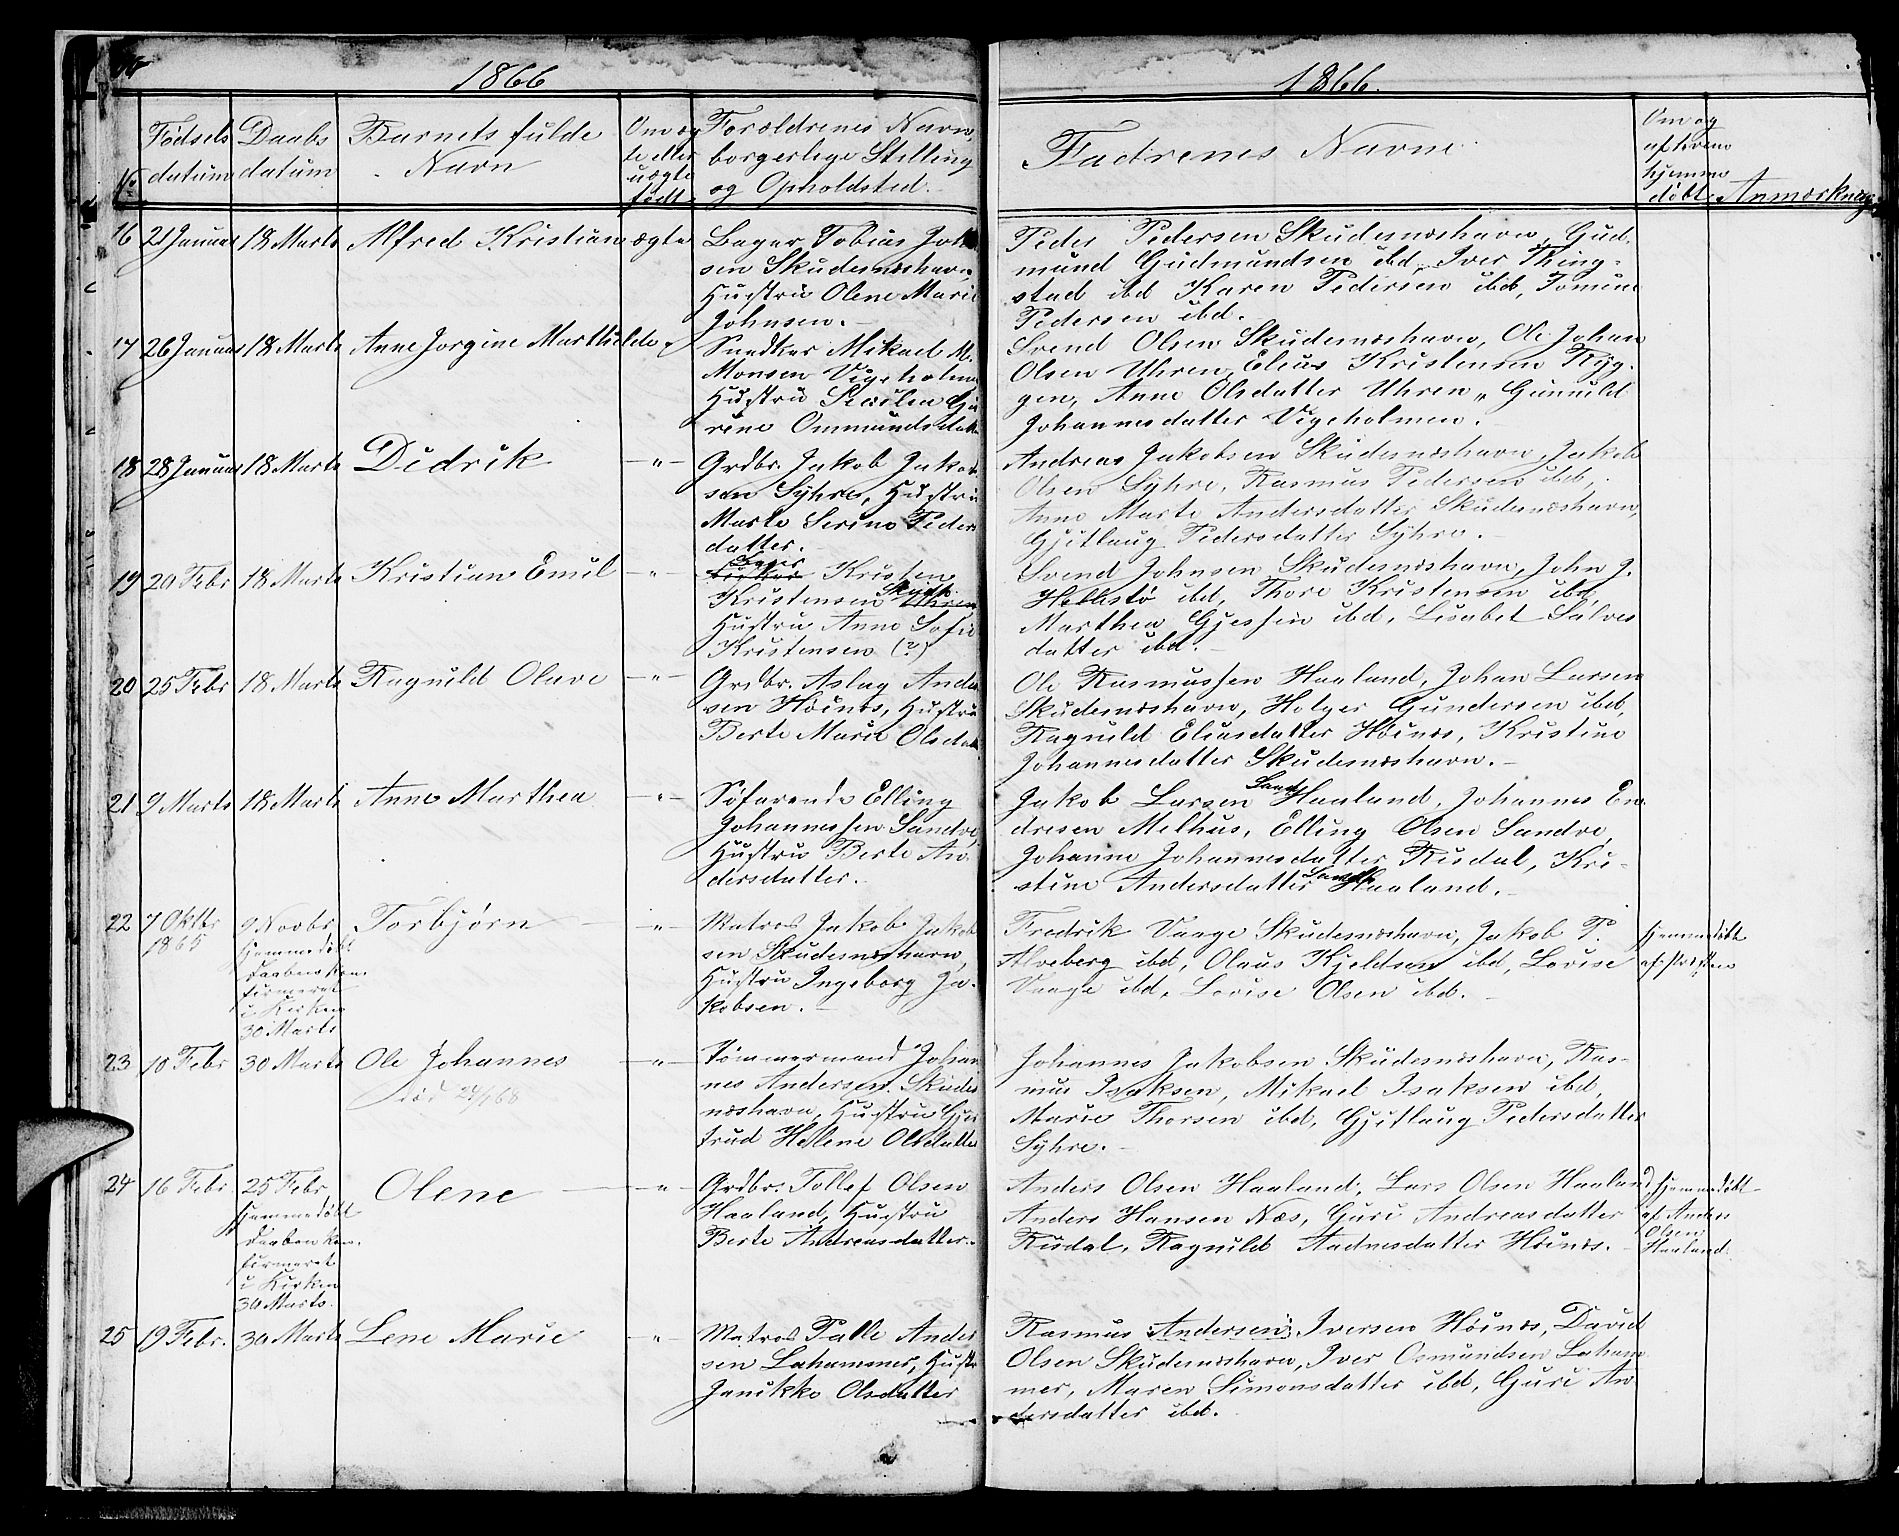 1866
1866.
No
Fødsels
datum
Daabs
datum
Barnets fulde
Navn
Om æg
te eller
uægte
født
Forældrenes Navn,
borgerlige Stilling
og Opholdsted.
Fadrenes Navne
Om og
af hvem
hjemme
døbt.
Anmærkning
16 21 Januar 18 Marts Alfred Kristian ægte
Bager Tobias John
sen Skudesnæshavn,
Hustru Olene Marie
Johnsen.
Peder Pedersen Skudesnæshavn, Gud-
mund Gudmundsen ibd, Iver Thing-
stad ibd Karen Pedersen ibd, Tomine
Pedersen ibd.
17 26 Januar 18 Marts Anne Jorgine Marthilde
Snedker Mikael M.
Monsen Vigeholmen
Hustru
rene Ommundsdatter
Svend Olsen Skudesnæshavn, Ole Johan
Olsen Uhren, Elias Kristensen Ryg-
gen, Anne Olsdatter Uhren, Gunuld
Johannesdatter Vigeholmen.
18 28 Januar 18 Marts Didrik -"-
Grdbr. Jakob Jakob
sen Syhre, Hustru
Marte Serine Peders
datter.
Andreas Jakobsen Skudesnæshavn, Jakob
Olsen Syhre, Rasmus Pedersen ibd,
Anne Marte Andersdatter Skudesnæshavn,
Gjitlaug Pedersdatter Syhre.
19 20 Febr 18 Marts Kristian Emil -"-
Kristen
Kristensen Uhren
Hustru Anne Sofie
Kristensen (?)
Svend Johnsen Skudesnæshavn, John J.
Hellestø ibd, Thore Kristensen ibd,
Marthea Gjessin ibd, Lisabet Salves
datter ibd.
20 25 Febr 18 Marts Raguild Olave -"-
Grdbr. Aslag Ander
sen Høinæs, Hustru
Berte Marie Olsdat
Ole Rasmussen Haaland, Johan Larsen
Skudesnæshavn, Holger Gundersen ibd,
Raguild Eliasdatter Høinæs, Kristine
Johannesdatter Skudesnæshavn.
21 9 Marts 18 Marts Anne Marthea -"-
Søfarende Elling
Johannessen Sandve,
Hustru Berte An
dersdatter.
Jakob Larsen Haaland, Johannes En
dresen Melhus, Elling Olsen Sandve,
Johanne Johannesdatter Risdal, Kri-
stine Andersdatter Haaland.
22 7 Oktbr
1865
9 Novbr
hjemmedøbt
Daaben kon.
firmeret
i Kirken
30 Marts
Torbjørn -"-
Matros Jakob Jakob
sen Skudesnæshavn,
Hustru Ingeborg Ja-
kobsen.
Fredrik Vaage Skudesnæshavn, Jakob T.
Alveberg ibd, Olaus Kjeldsen ibd, Lovise
Vaage ibd, Lovise Olsen ibd.
hjemmedøbt
af Presten
23 10 Febr 30 Marts Ole Johannes -"-
død
Tømmermand Johan
nes Andersen Skudes
næshavn, Hustru Gjer
trud Helene Olsdatter
Johannes Jakobsen Skudesnæshavn, Ras-
mus Isaksen, Mikael Isaksen ibd,
Marie Thorsen ibd, Gjitlaug Pedersdatter
Syhre.
24 16 Febr 25 Febr
hjemmedøbt
Daaben kon.
firmeret
i Kirken
30 Marts.
Olene -"-
Grdbr. Tollef Olsen
Haaland, Hustru
Berte Andreasdatter.
Anders Olsen Haaland, Lars Olsen Haaland
Anders Hansen Næs, Guri Andreasdatter
Risdal, Raguild Aadnesdatter Høinæs.
hjemmedøbt
af Anders
Olsen
Haaland.
25 19 Febr. 30 Marts Lene Marie -"-
Matros Palle Ander
sen Lahammer, Hustr
Janikke Olsdatter
Rasmus Andersen Iversen Høinæs, David
Olsen Skudesnæshavn, Iver Osmundsen Laham
mer, Maren Simonsdatter ibd, Guri An
dersdatter ibd.